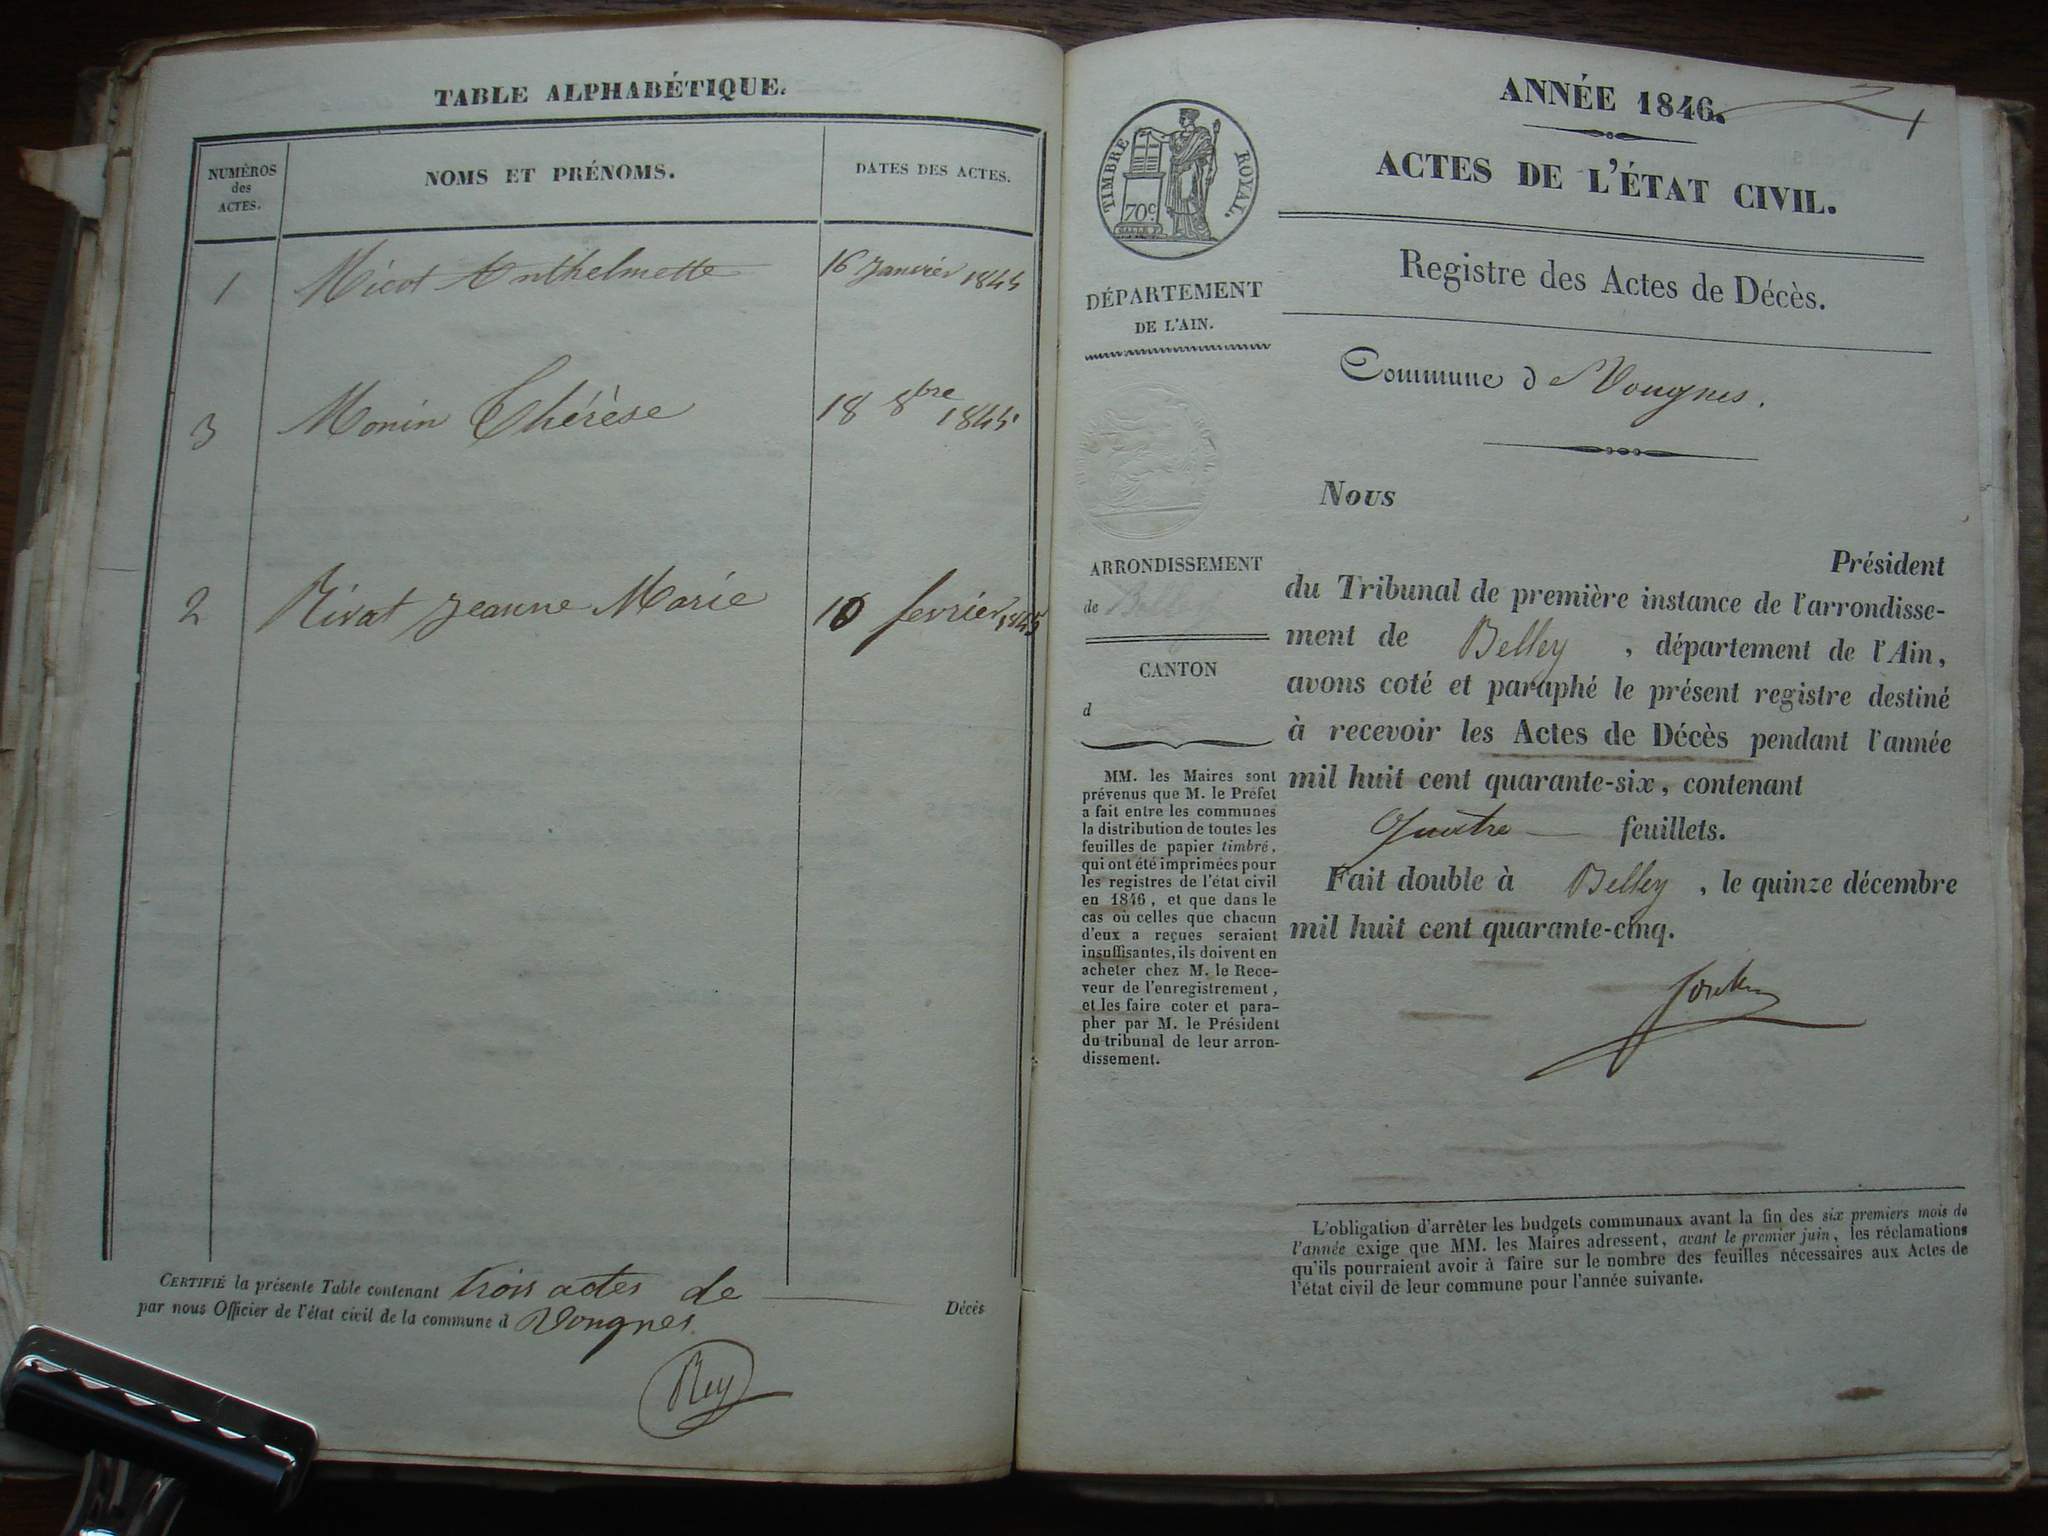 TABLE ALPHABÉTIQUE.
NUMÉROS
des
ACTES.
NOMS ET PRÉNOMS.
DATES DES ACTES.
1 Micot Anthelmette 16 Janvier 1845
3 Monin Thérèse 18 8bre 1845
2 Rivat Jeanne Marie 10 fevrier 1845
CERTIFIÉ la présente Table contenant trois actes de Décès
par nous Officier de l'état civil de la commune d Vongnes
Rey
ANNÉE 1846.
1
ACTES DE L'ÉTAT CIVIL.
Registre des Actes de Décès.
Commune de Vongnes.
TIMBRE ROYAL.
70c
DÉPARTEMENT
DE L'AIN.
ARRONDISSEMENT
de Belley
CANTON
d
MM. les Maires sont
prévenus que M. le Préfet
a fait entre les communes
la distribution de toutes les
feuilles de papier timbré,
qui ont été imprimées pour
les registres de l'état civil
en 1846, et que dans le
cas où celles que chacun
d'eux a reçues seraient
insuffisantes, ils doivent en
acheter chez M. le Rece-
veur de l'enregistrement,
et les faire coter et para-
pher par M. le Président
du tribunal de leur arron-
dissement.
Nous
Président
du Tribunal de première instance de l'arrondisse-
ment de Belley, département de l'Ain,
avons coté et paraphé le présent registre destiné
à recevoir les Actes de Décès pendant l'année
mil huit cent quarante-six, contenant
Quatre feuillets.
Fait double à Belley, le quinze décembre
mil huit cent quarante-cinq.
L'obligation d'arrêter les budgets communaux avant la fin des six premiers mois de
l'année exige que MM. les Maires adressent, avant le premier juin, les réclamations
qu'ils pourraient avoir à faire sur le nombre des feuilles nécessaires aux Actes de
l'état civil de leur commune pour l'année suivante.